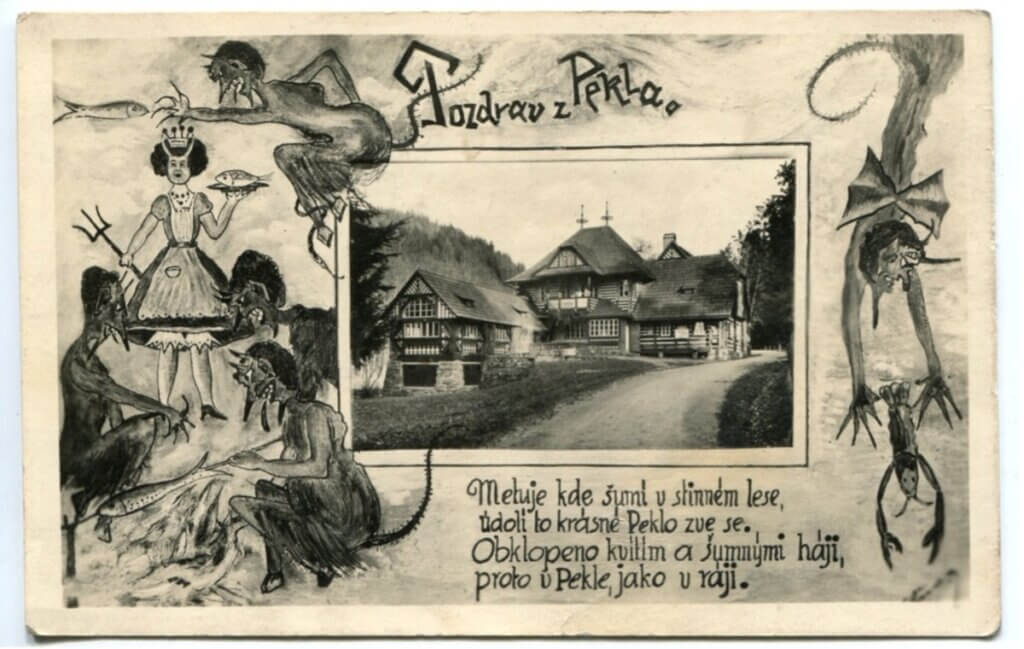 Pozdrav z Pekla.
Metuje kde šumí v stinném lese,
údolí to krásné Peklo zve se.
Obklopeno kvítím a šumnými háji,
proto v Pekle, jako v ráji.